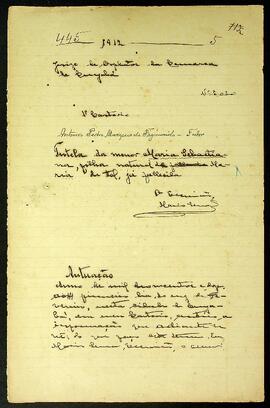 445 1912 5 712
Juizo de Orphãos da Comarca
de Cuyabá
1º Cartorio
Antonio Pedro Marques de Figueiredo - Tutor
Tutela da menor Maria Sebastia
na, filha natural de Ma
ria de tal, já fallecida
O Escrivão
Autuação
Anno de mil novecentos e doze,
aos primeiro dia do mez de Fe
vereiro, nesta cidade de Cuya
bá, em meu Cartorio, autúo a
que adiante se
vê; do que faço este termo. Eu,
Escrivão, o escrevi